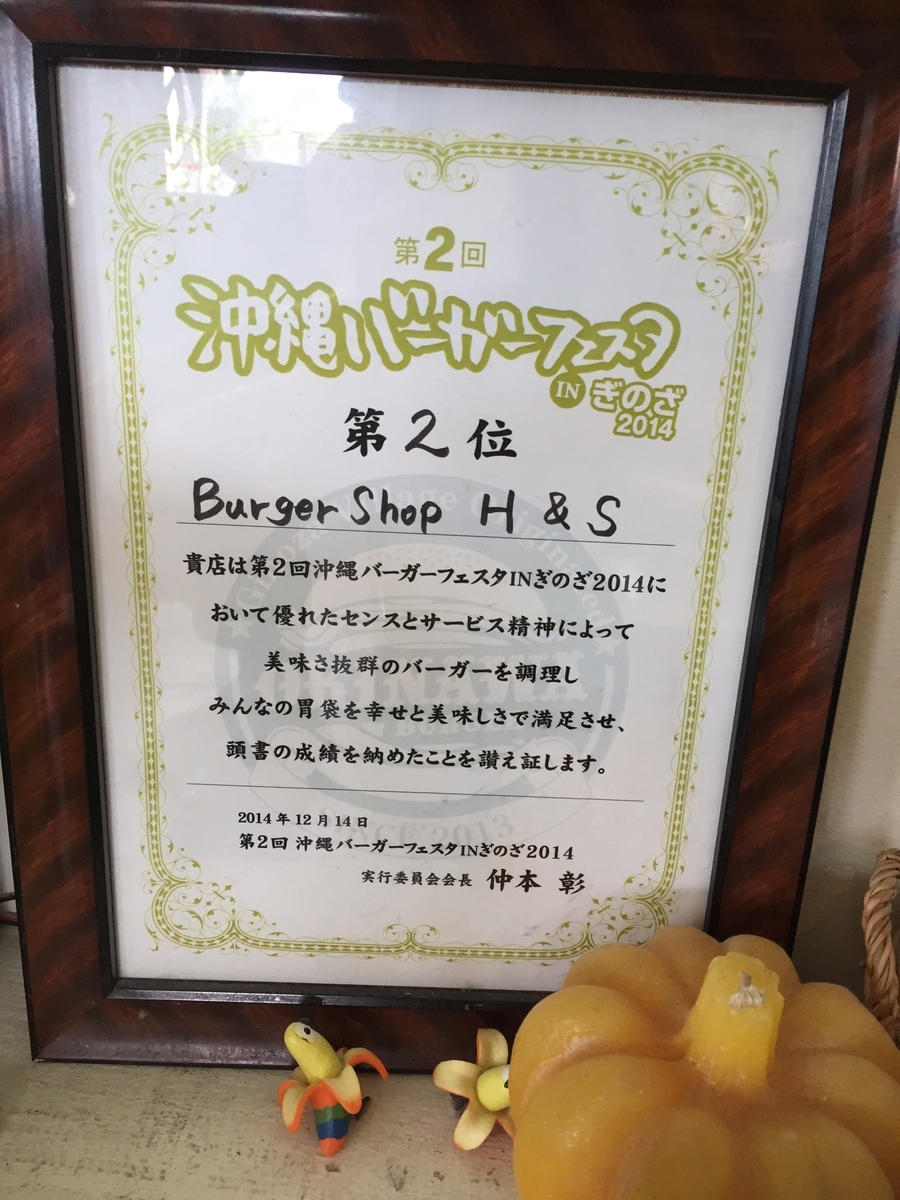 第2回
沖縄バーガーフェスタ
IN ぎのざ
2014
第2位
Burger Shop H & S
貴店は第2回沖縄バーガーフェスタINぎのざ2014に
おいて優れたセンスとサービス精神によって
美味さ抜群のバーガーを調理し
みんなの胃袋を幸せと美味しさで満足させ、
頭書の成績を納めたことを讃え証します。
SINCE 2013
2014年12月14日
第2回 沖縄バーガーフェスタINぎのざ2014
実行委員会会長 仲本 彰